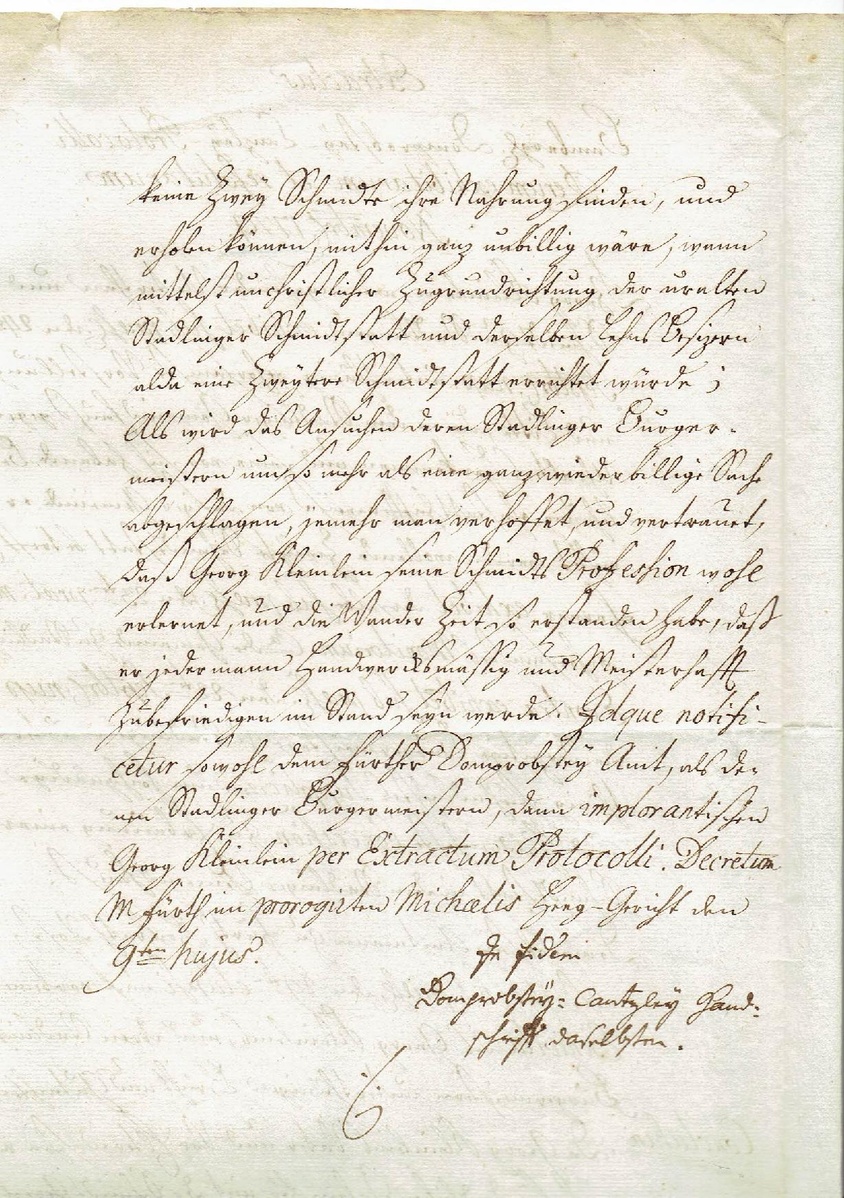 keine Zwey Schmidte ihre Nahrung finden, und
erholen können, mithin ganz unbillig wäre, wann
mittelst unchristlicher Zugrundrichtung der uralten
Stadlinger Schmidtstatt und derselben Lehns Besizern
alda eine Zweytere Schmidtstatt errichtet würde ;
Als wird das Ansuchen deren Stadlinger Burger-
meistern um so mehr als eine ganz wiederbillige Sache
abgeschlagen, jemehr man verhoffet, und vertrauet,
daß Georg Kleinlein seine Schmidts Profession wohl
erlernet, und die Wander Zeit so erstanden habe, daß
er jedermann Handwercksmässig und Meisterhafft
zubefriedigen im Stand seyn werde. Idque notifi-
cetur sowohl dem Fürther Domprobstey Amt, als de-
nen Stadlinger Burgermeistern, dann implorantischen
Georg Kleinlein per Extractum Protocolli. Decretum
Fürth im prorogirten Michaelis Heeg-Gericht den
9ten hujus.
In fidem
Domprobstey- Cantzley Hand-
schrifft daselbsten.